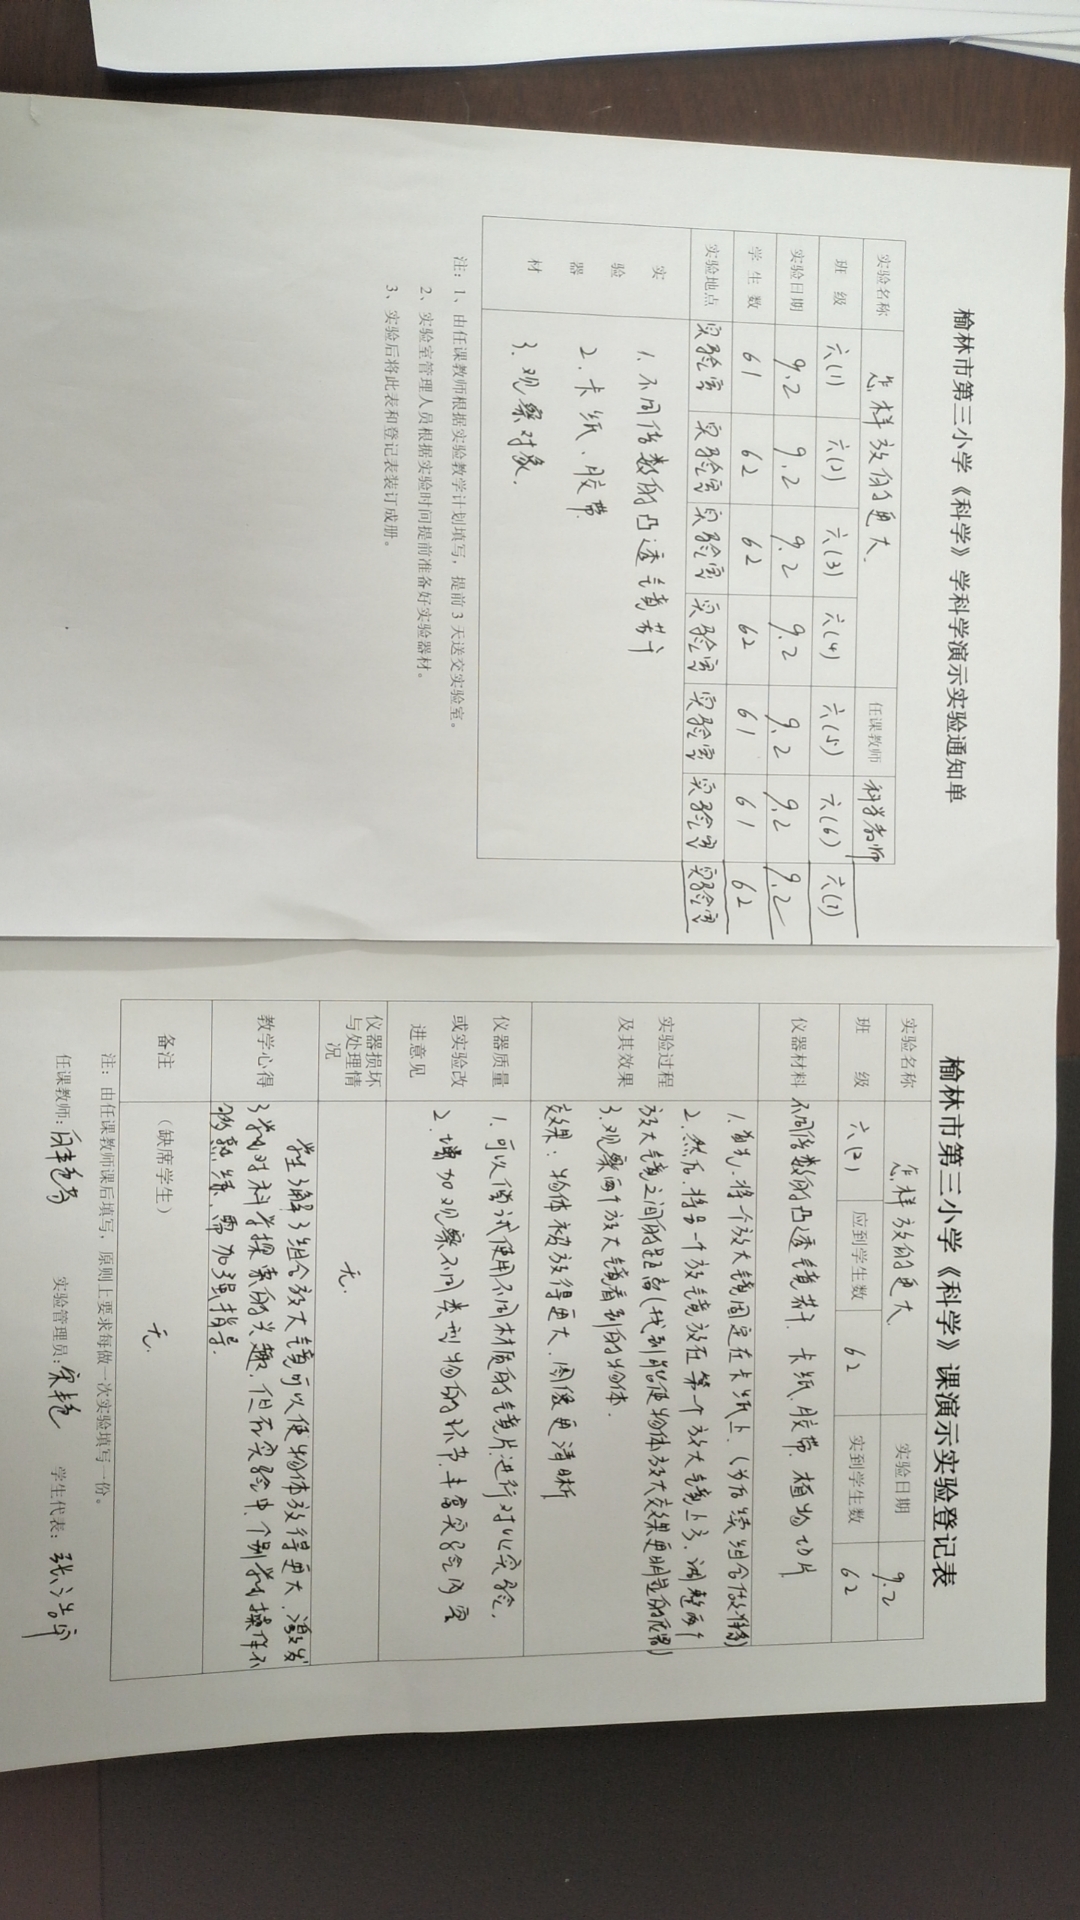 榆林市第三小学《科学》学科学演示实验通知单
实验名称 怎样放的更大 任课教师 科学教师
班 级 六(1) 六(2) 六(3) 六(4) 六(5) 六(6) 六(7)
实验日期 9.2 9.2 9.2 9.2 9.2 9.2 9.2
学 生 数 61 62 62 62 61 61 62
实验地点 实验室 实验室 实验室 实验室 实验室 实验室 实验室
实验器材
1. 不同倍数的凸透镜若干
2. 卡纸、胶带
3. 观察对象.
注：1、由任课教师根据实验教学计划填写，提前 3 天送交实验室。
2、实验室管理人员根据实验时间提前准备好实验器材。
3、实验后将此表和登记表装订成册。
榆林市第三小学《科学》课演示实验登记表
实验名称 怎样放的更大 实验日期 9.2
班 级 六(2) 应到学生数 62 实到学生数 62
仪器材料 不同倍数的凸透镜若干. 卡纸、胶带. 植物切片
实验过程及其效果
1. 首先, 将一个放大镜固定在卡纸上. (为后续组合做准备)
2. 然后. 将另一个放大镜放在第一个放大镜上方. 调整两个
放大镜之间的距离(找到能使物体放大效果更明显的位置)
3. 观察两个放大镜看到的物体.
效果: 物体被放得更大. 图像更清晰
仪器质量或实验改进意见
1. 可以尝试使用不同材质的镜片进行对比实验.
2. 增加观察不同类型物的环节. 丰富实验内容
仪器损坏与处理情况 无.
教学心得
学生了解了组合放大镜可以使物体放得更大. 激发
了学生对科学探索的兴趣. 但在实验中. 个别学生操作不
够熟练. 需加强指导.
备注 (缺席学生) 无.
注：由任课教师课后填写，原则上要求每做一次实验填写一份。
任课教师: 实验管理员: 宋艳 学生代表: